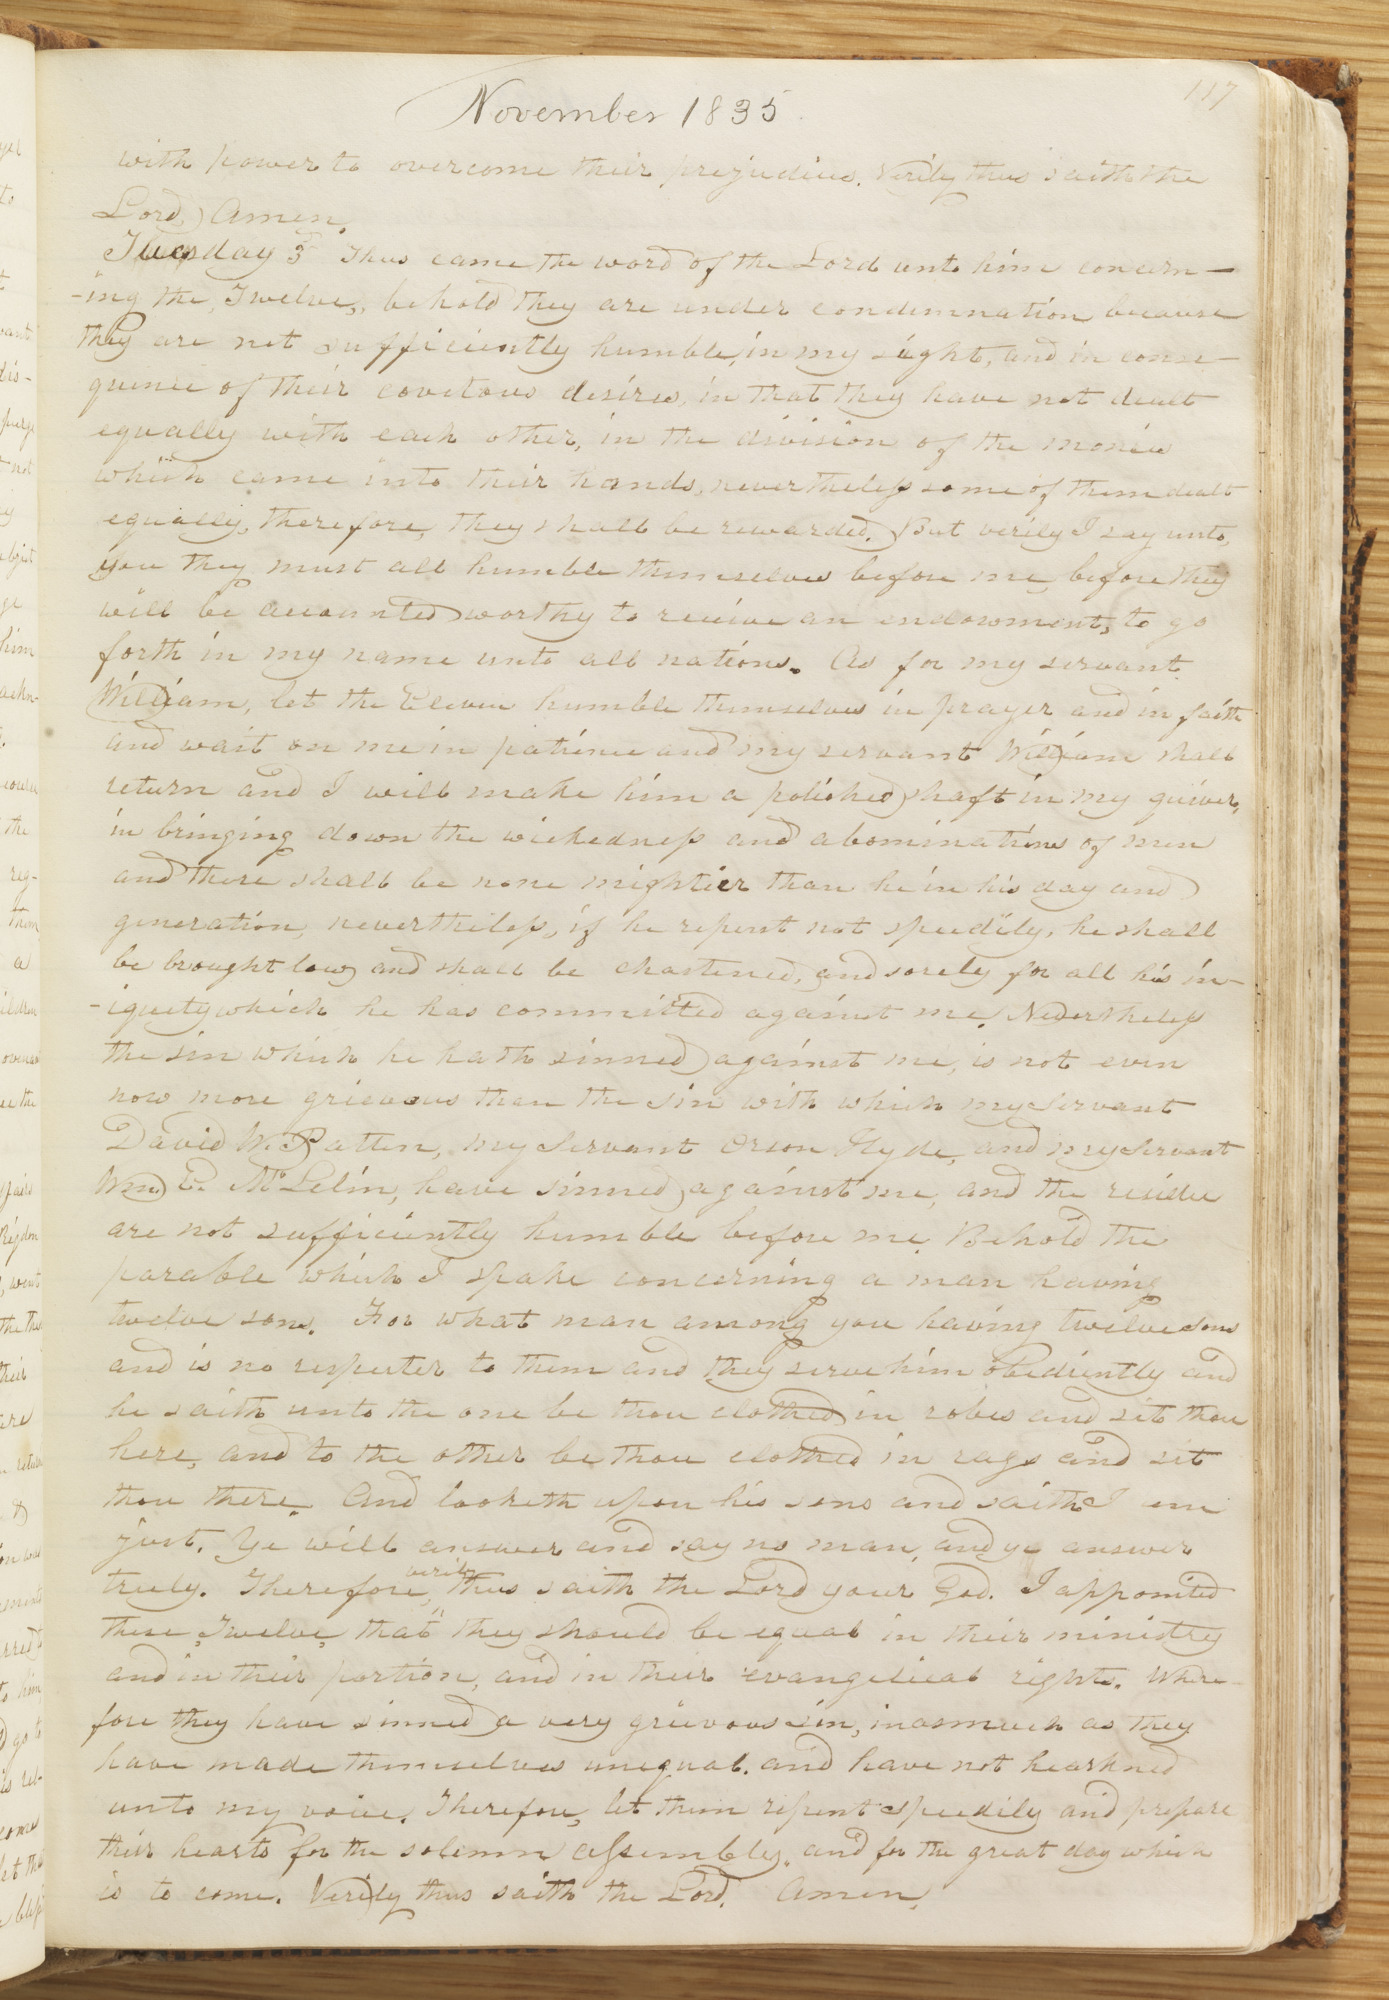 117
November 1835.
with power to overcome their prejudices. Verily thus saith the
Lord, Amen.
Tuesday 3d Thus came the word of the Lord unto him concern-
-ing the, Twelve,, behold they are under condemnation because
they are not sufficiently humble, in my sight, and in conse-
quence of their covetous desires, in that they have not dealt
equally with each other, in the division of the monies
which came into their hands, nevertheless some of them dealt
equally, therefore, they shall be rewarded. But verily I say unto,
you they must all humble themselves before me, before they
will be accounted worthy to receive an endowment, to go
forth in my name unto all nations. As for my servant
William, let the Eleven humble themselves in prayer and in faith
and wait on me in patience and my servant William shall
return and I will make him a polished shaft in my quiver,
in bringing down the wickedness and abominations of men
and there shall be none mightier than he in his day and
generation, nevertheless, if he repent not speedily, he shall
be brought low, and shall be chastened, and sorely for all his in-
-iquety which he has committed against me. Nevertheless
the sin which he hath sinned against me, is not even
now more grievous than the sin with which my servant
David W. Patten, my servant Orson Hyde, and my servant
Wm. E. Mc. Lelin, have sinned against me, and the residue
are not sufficiently humble before me. Behold the
parable which I spake concerning a man having
twelve sons. For what man among you having twelve sons
and is no respecter to them and they serve him obediently and
he saith unto the one be thou clothed in robes and sit thou
here, and to the other be thou clothed in rags and sit
thou there. And looketh upon his sons and saith I am
just. Ye will answer and say no man, and ye answer
truly. Therefore, verily thus saith the Lord your God. I appointed
these, Twelve, that they should be equal in their ministry
and in their portion, and in their evangelical rights. Where-
fore they have sinned a very grievous sin, inasmuch as they
have made themselves unequal. and have not hearkned
unto my voice. Therefore, let them repent speedily and prepare
their hearts for the solemn assembly, and for the great day which
is to come. Verily thus saith the Lord. Amen.